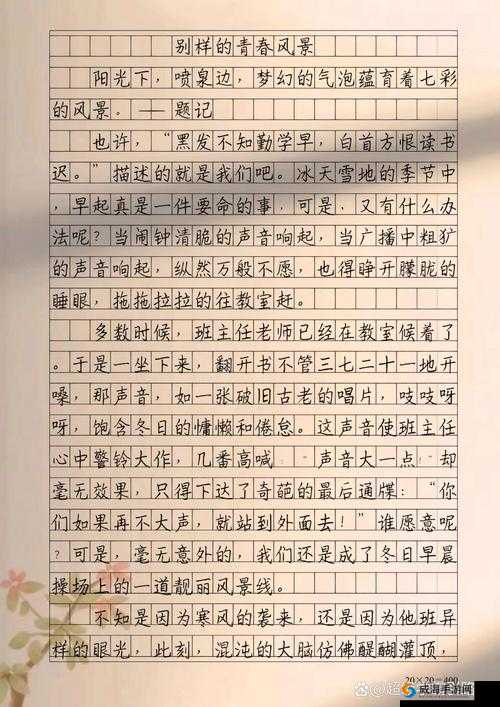 别样的青春风景
阳光下，喷泉边，梦幻的气泡蕴育着七彩
的风景。——题记
也许，“黑发不知勤学早，白首方恨读书
迟。”描述的就是我们吧。冰天雪地的季节中
，早起真是一件要命的事，可是，又有什么办
法呢？当闹钟清脆的声音响起，当广播中粗犷
的声音响起，纵然万般不愿，也得睁开朦胧的
睡眼，拖拖拉拉的往教室赶。
多数时候，班主任老师已经在教室候着了
。于是一坐下来，翻开书不管三七二十一地开
嗓，那声音，如一张破旧古老的唱片，吱吱呀
呀，饱含冬日的慵懒和倦怠。这声音使班主任
心中警铃大作，几番高喊 声音大一点 却
毫无效果，只得下达了奇葩的最后通牒：“你
们如果再不大声，就站到外面去！”谁愿意呢
？可是，毫无意外的，我们还是成了冬日早晨
操场上的一道靓丽风景线。
不知是因为寒风的袭来，还是因为他班异
样的眼光，此刻，混沌的大脑仿佛醍醐灌顶，
20×20=400
威海手游网